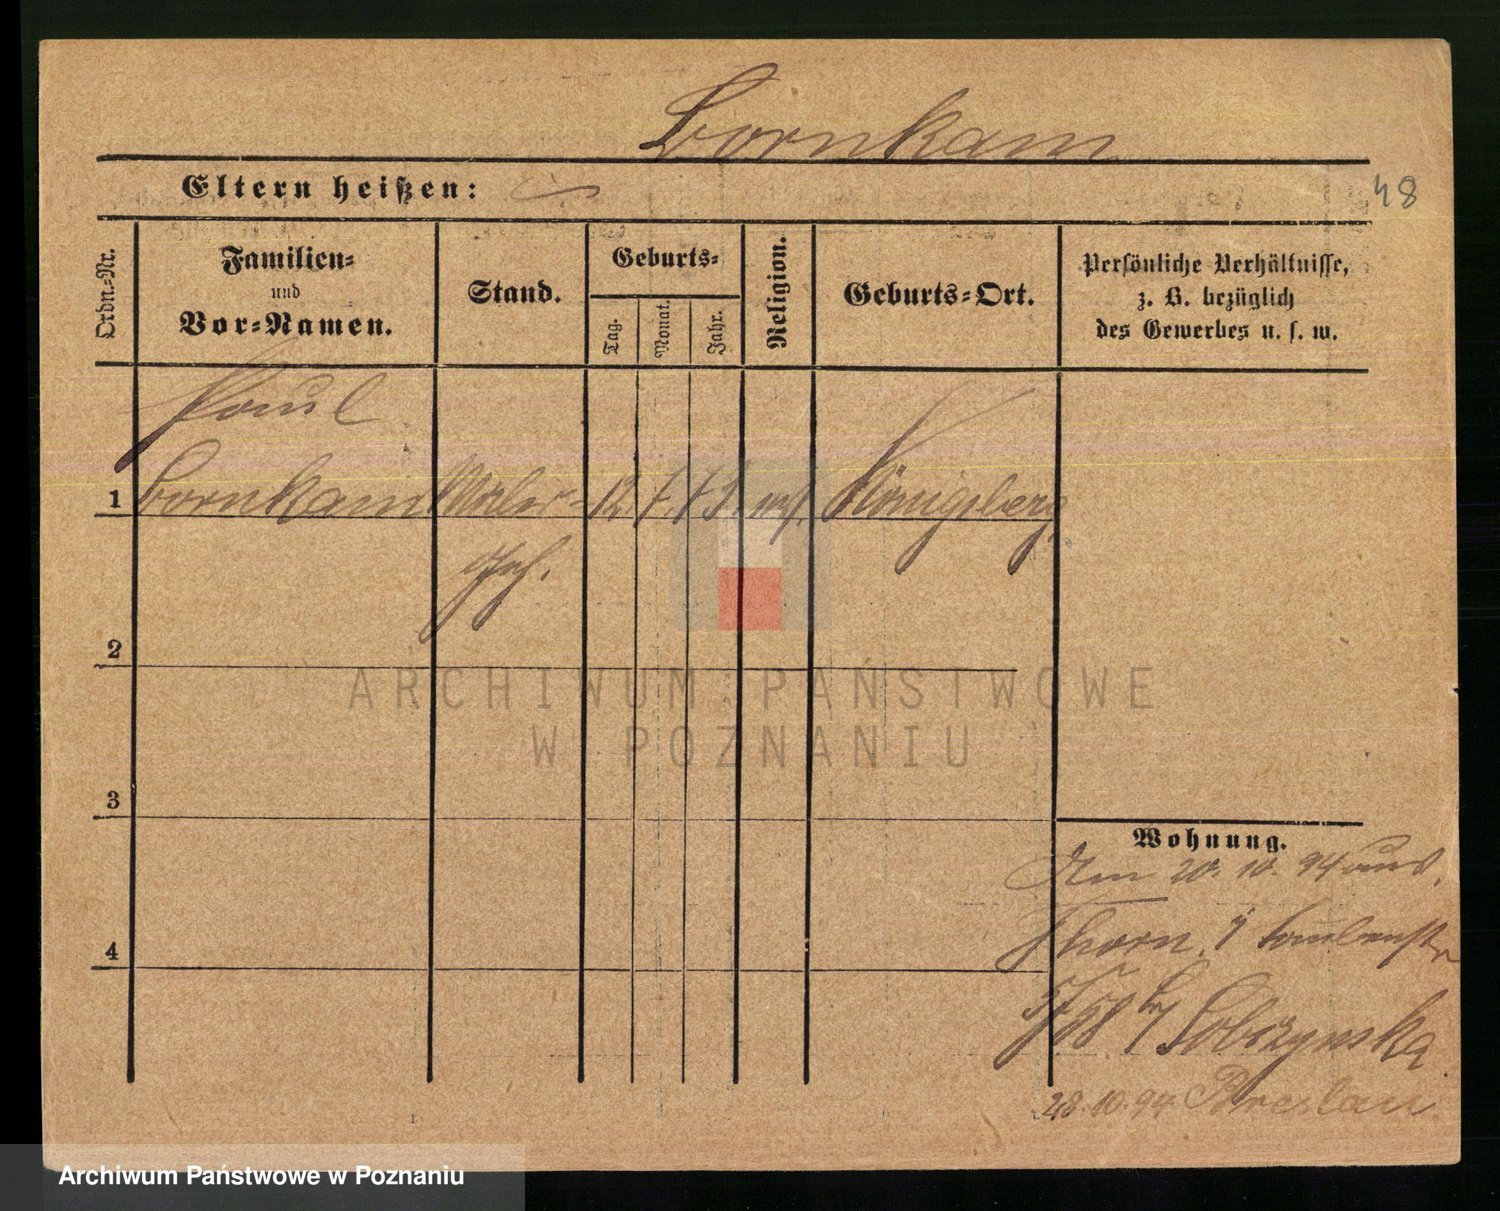 Bornkam
Eltern heißen:
48
Ordn.-Nr.
Familien-
und
Vor-Namen.
Stand.
Geburts-
Tag.
Monat.
Jahr.
Religion.
Geburts-Ort.
Persönliche Verhältnisse,
z. B. bezüglich
des Gewerbes u. s. w.
Paul
1 Bornkam Maler- 12. 7. 73. Königsberg
Geh.
2
3
4
Wohnung.
Am 20. 10. 94 aus
Thorn
Sobzynska
28. 10. 94 Breslau
ARCHIWUM PAŃSTWOWE
W POZNANIU
Archiwum Państwowe w Poznaniu